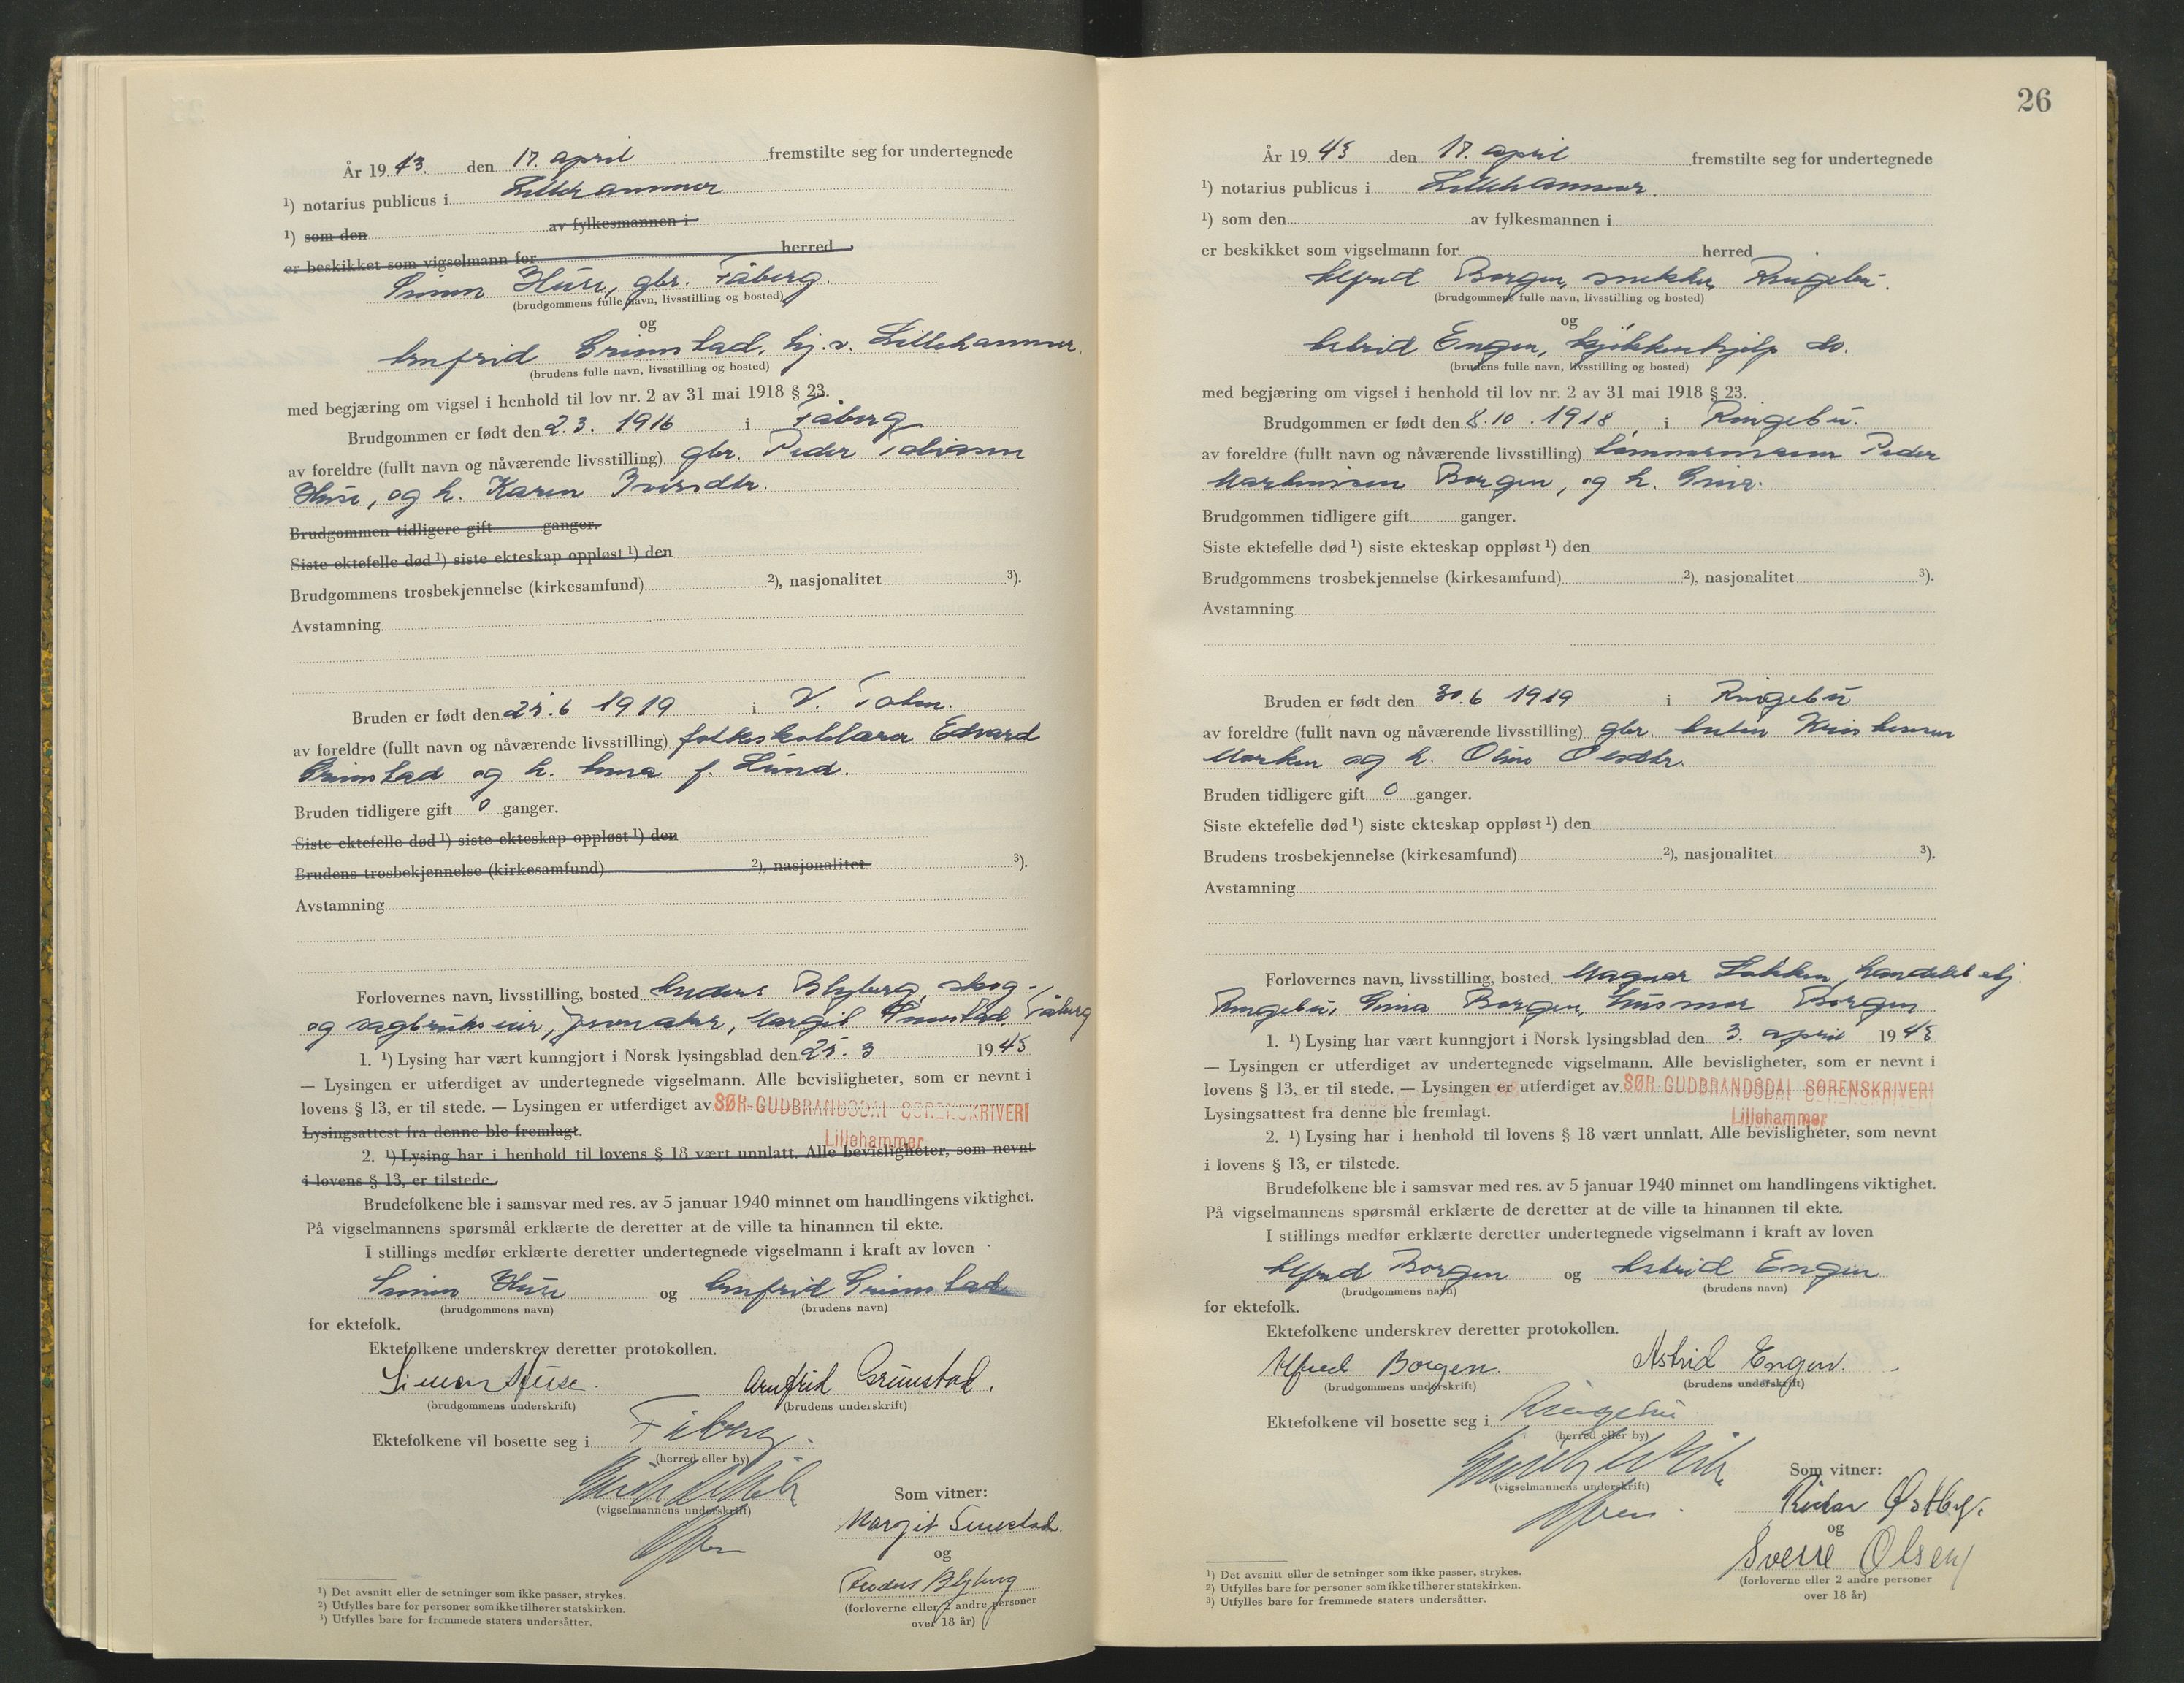 År 1943. den 17. april fremstilte seg for undertegnede
¹) notarius publicus i Lillehammer
¹) som den av fylkesmannen i
er beskikket som vigselmann for herred
Simen Huse, gbr. Fåberg.
(brudgommens fulle navn, livsstilling og bosted)
og
Arnfrid Grimstad, hj.v. Lillehammer.
(brudens fulle navn, livsstilling og bosted)
med begjæring om vigsel i henhold til lov nr. 2 av 31 mai 1918 § 23.
Brudgommen er født den 2.3. 1916 i Fåberg
av foreldre (fullt navn og nåværende livsstilling) gbr. Peder Tobiassen
Huse, og h. Karen Iversdtr.
Brudgommen tidligere gift ganger.
Siste ektefelle død ¹) siste ekteskap oppløst ¹) den
Brudgommens trosbekjennelse (kirkesamfund) ²), nasjonalitet ³).
Avstamning
Bruden er født den 25.6 1919 i V. Toten.
av foreldre (fullt navn og nåværende livsstilling) folkeskolelærer Edvard
Grimstad og h. Anna f. Lund.
Bruden tidligere gift 0 ganger.
Siste ektefelle død ¹) siste ekteskap oppløst ¹) den
Brudens trosbekjennelse (kirkesamfund) ²), nasjonalitet ³).
Avstamning
Forlovernes navn, livsstilling, bosted Anders Blyberg, skog-
og sagbrukseier, Margit Fåberg
1. ¹) Lysing har vært kunngjort i Norsk lysingsblad den 25. 3 1943
— Lysingen er utferdiget av undertegnede vigselmann. Alle bevisligheter, som er nevnt i
lovens § 13, er til stede. — Lysingen er utferdiget av SØR-GUDBRANDSDAL SORENSKRIVERI
Lysingsattest fra denne ble fremlagt.
Lillehammer
2. ¹) Lysing har i henhold til lovens § 18 vært unnlatt. Alle bevisligheter, som nevnt
i lovens § 13, er tilstede.
Brudefolkene ble i samsvar med res. av 5 januar 1940 minnet om handlingens viktighet.
På vigselmannens spørsmål erklærte de deretter at de ville ta hinannen til ekte.
I stillings medfør erklærte deretter undertegnede vigselmann i kraft av loven
Simen Huse og Arnfrid Grimstad
(brudgommens navn) (brudens navn)
for ektefolk.
Ektefolkene underskrev deretter protokollen.
Simen Huse. Arnfrid Grimstad.
(brudgommens underskrift) (brudens underskrift)
Ektefolkene vil bosette seg i Fåberg.
(herred eller by)
(vigselmannens underskrift)
Som vitner:
Margit
og
Anders Blyberg
(forloverne eller 2 andre personer
over 18 år)
¹) Det avsnitt eller de setninger som ikke passer, strykes.
²) Utfylles bare for personer som ikke tilhører statskirken.
³) Utfylles bare for fremmede staters undersåtter.
26
År 1943 den 17. april fremstilte seg for undertegnede
¹) notarius publicus i Lillehammer.
¹) som den av fylkesmannen i
er beskikket som vigselmann for herred
Alfred Borgen, snekker, Ringebu.
(brudgommens fulle navn, livsstilling og bosted)
og
Astrid Engen, kjøkkenhjelp do.
(brudens fulle navn, livsstilling og bosted)
med begjæring om vigsel i henhold til lov nr. 2 av 31 mai 1918 § 23.
Brudgommen er født den 8.10.1918 i Ringebu.
av foreldre (fullt navn og nåværende livsstilling) tømmermann Peder
Borgen, og h. Gina.
Brudgommen tidligere gift ganger.
Siste ektefelle død ¹) siste ekteskap oppløst ¹) den
Brudgommens trosbekjennelse (kirkesamfund) ²), nasjonalitet ³).
Avstamning
Bruden er født den 30.6 1919 i Ringebu
av foreldre (fullt navn og nåværende livsstilling) gbr. Anton Kristensen
og h. Oline Olsdtr.
Bruden tidligere gift 0 ganger.
Siste ektefelle død ¹) siste ekteskap oppløst ¹) den
Brudens trosbekjennelse (kirkesamfund) ²), nasjonalitet ³).
Avstamning
Forlovernes navn, livsstilling, bosted Magnar Løkken,
Ringebu, Gina Borgen, husmor Borgen
1. ¹) Lysing har vært kunngjort i Norsk lysingsblad den 3. april 1943
— Lysingen er utferdiget av undertegnede vigselmann. Alle bevisligheter, som er nevnt i
lovens § 13, er til stede. — Lysingen er utferdiget av SØR GUDBRANDSDAL SORENSKRIVERI
Lysingsattest fra denne ble fremlagt. Lillehammer
2. ¹) Lysing har i henhold til lovens § 18 vært unnlatt. Alle bevisligheter, som nevnt
i lovens § 13, er tilstede.
Brudefolkene ble i samsvar med res. av 5 januar 1940 minnet om handlingens viktighet.
På vigselmannens spørsmål erklærte de deretter at de ville ta hinannen til ekte.
I stillings medfør erklærte deretter undertegnede vigselmann i kraft av loven
Alfred Borgen og Astrid Engen
(brudgommens navn) (brudens navn)
for ektefolk.
Ektefolkene underskrev deretter protokollen.
Alfred Borgen. Astrid Engen.
(brudgommens underskrift) (brudens underskrift)
Ektefolkene vil bosette seg i Ringebu
(herred eller by)
(vigselmannens underskrift)
Som vitner:
Østby.
og
Sverre Olsen
(forloverne eller 2 andre personer
over 18 år)
¹) Det avsnitt eller de setninger som ikke passer, strykes.
²) Utfylles bare for personer som ikke tilhører statskirken.
³) Utfylles bare for fremmede staters undersåtter.